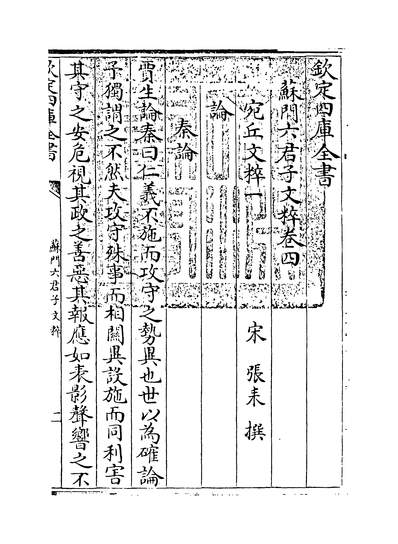 欽定四庫全書
蘇門六君子文粹卷四
宛丘文粹一
宋 張耒 撰
論
秦論
賈生論秦曰仁義不施而攻守之勢異也世以為確論
予獨謂之不然夫攻守殊事而相關異設施而同利害
其守之安危視其政之善惡其報應如表影聲響之不
欽定四庫全書
蘇門六君子文粹
二